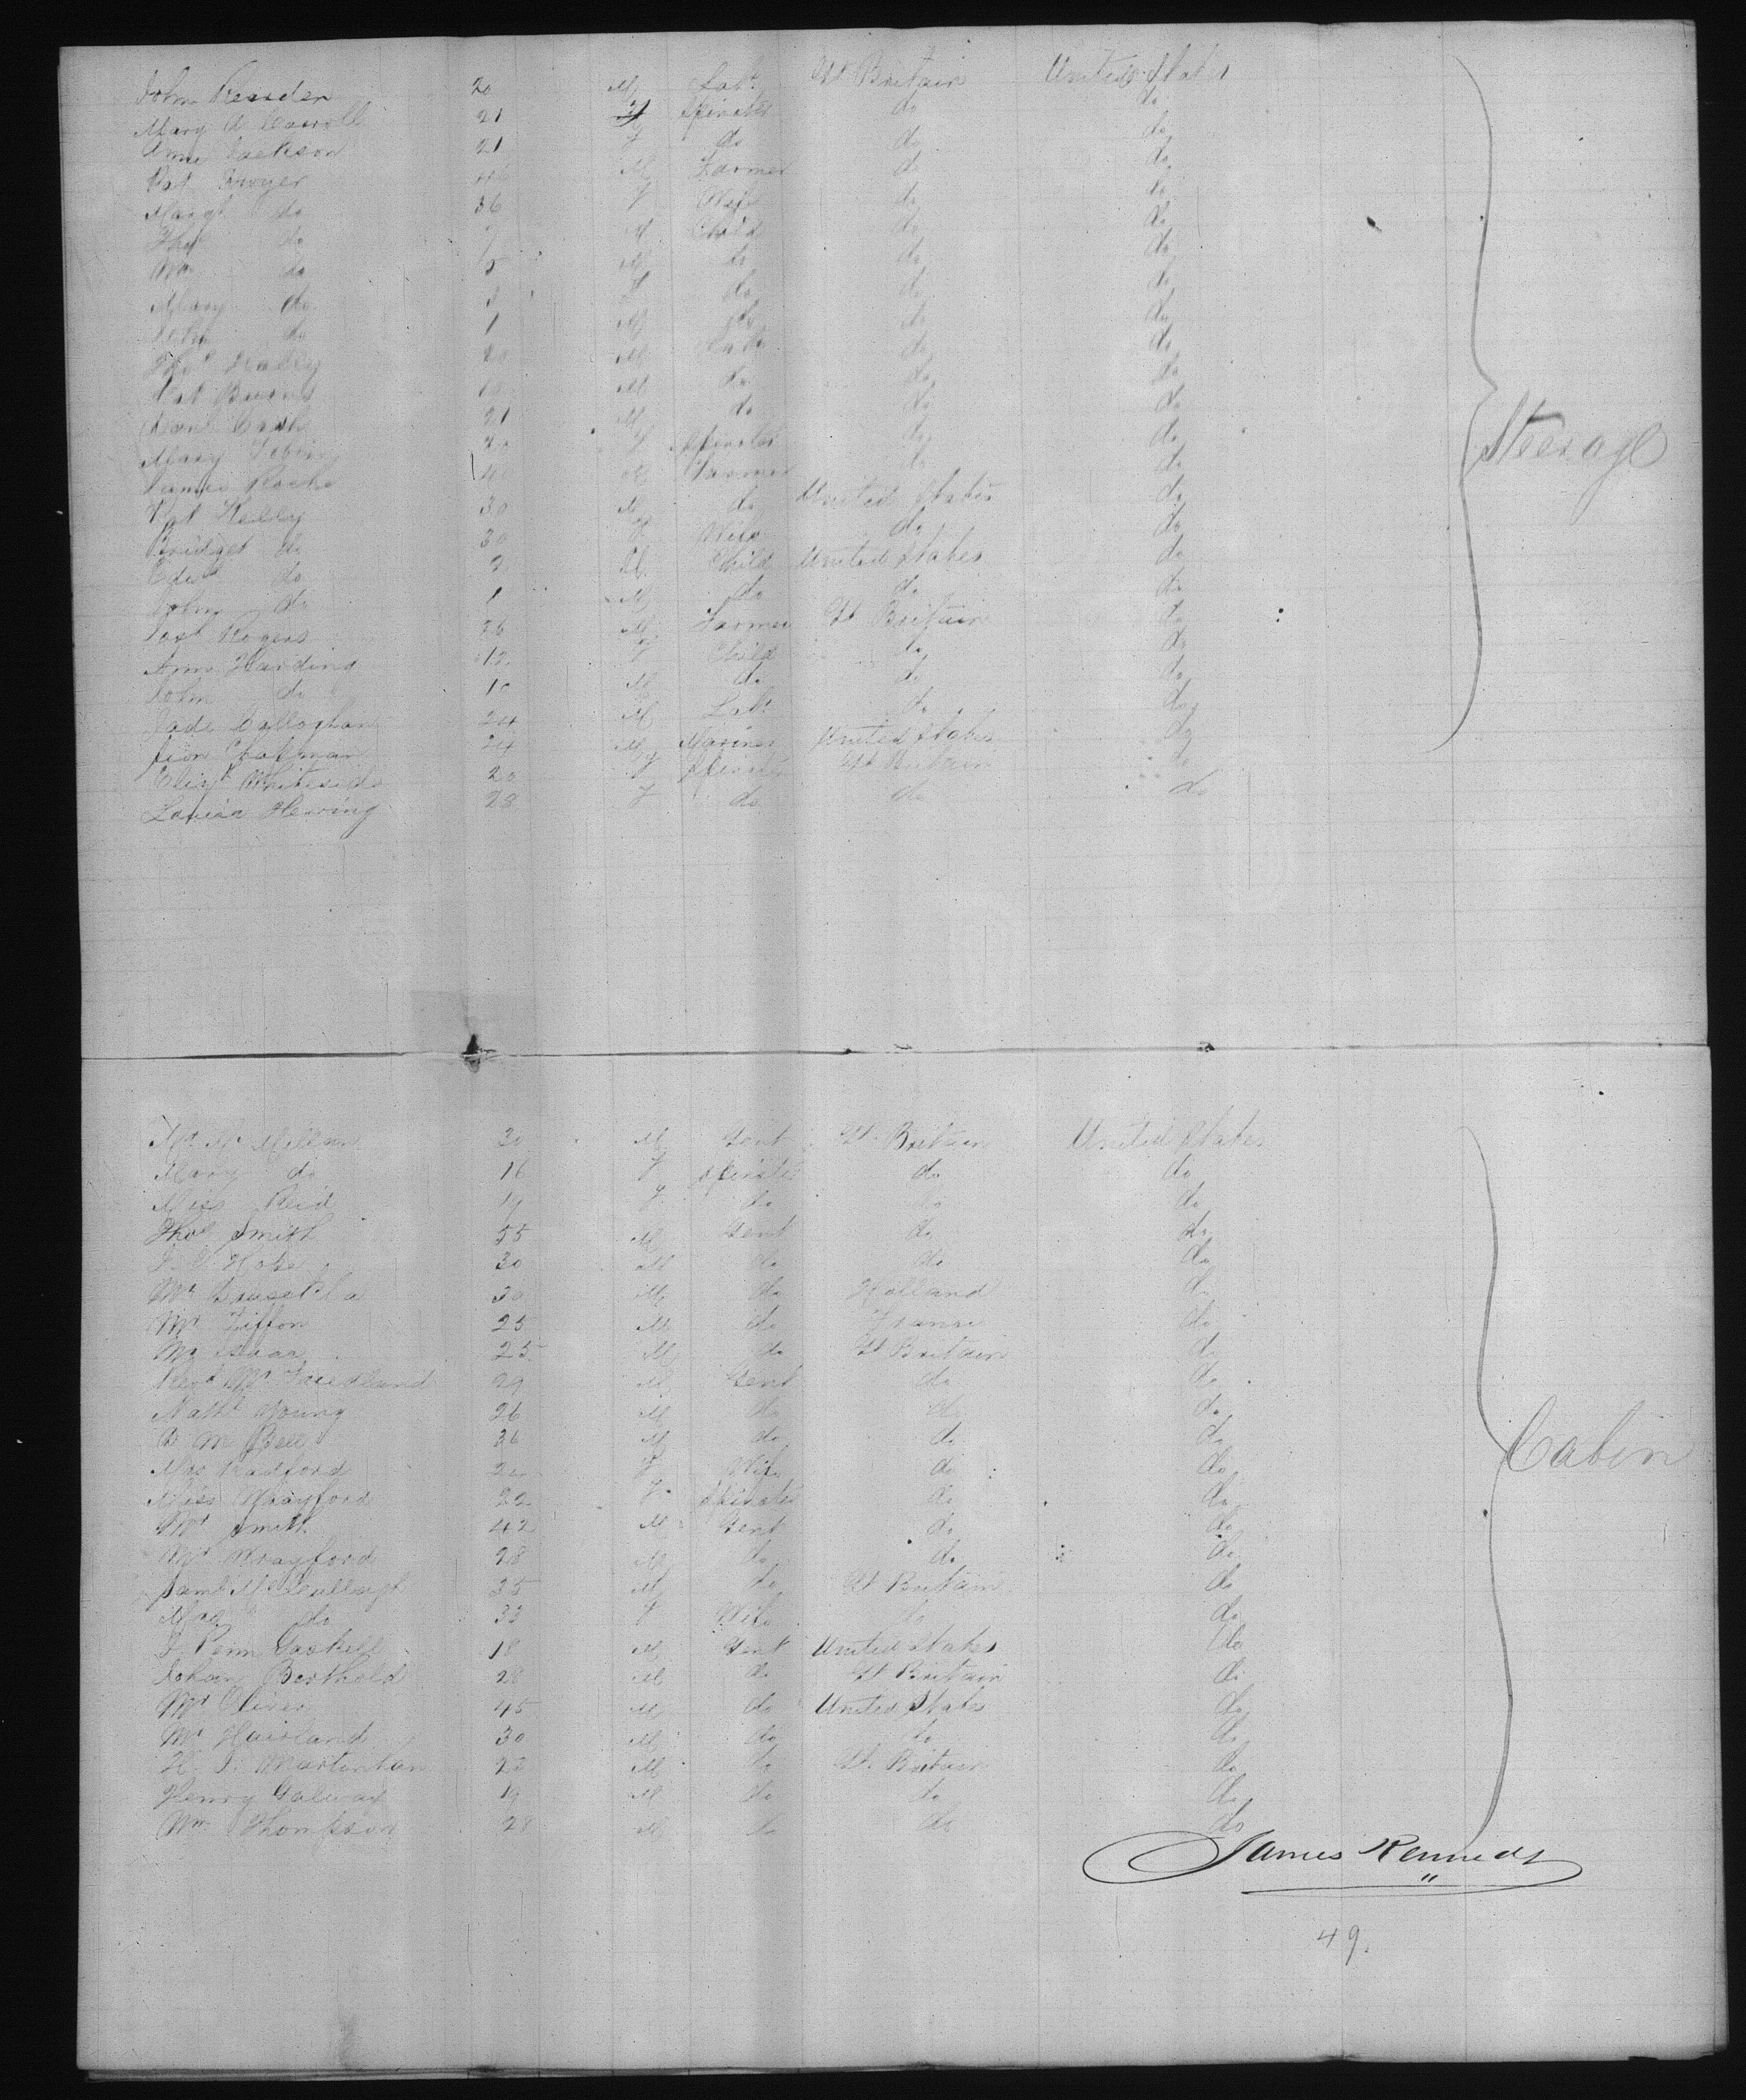 John 20 M Labr Gt Britain United States
Mary A Carroll 21 F Spinster do do
Ann Jackson 21 F do do do
Pat Dwyer M Farmer do do
Margt do 36 F Wife do do
Thos do M Child do do
Wm do 5 M do do do
Mary do 3 F do do do
John do 1 M do do do
Thos 20 M Labr do do
Pat Burns M do do do
Cash 21 M do do do
Mary Tobin 20 F Spinster do do
James Roche M Farmer do do
Pat Kelly 30 M do United States do
Bridget do 30 F Wife do do
Edwd do 2 M Child United States do
John do 1 M do do do
Josh Rogers 26 M Farmer Gt Britain do
Ann Harding 12 F Child do do
John do 10 M do do do
Callaghan 24 M Labr do do
Chapman 24 M Mariner United States do
Elizh Whiteside 20 F Spinster Gt Britain do
Louisa Herring 28 F do do do
Steerage
Mr McMillan 30 M Gent Gt Britain United States
Mary do 16 F Spinster do do
Miss Reid 19 F do do do
Thos Smith 55 M Gent do do
30 M do do do
Mr 30 M do Holland do
Mr Tiffon 25 M do France do
Mr Isaac 25 M do Gt Britain do
Revd Mr Friedland 29 M Gent do do
Nathl Young 26 M do do do
B M Bell 36 M do do do
Mrs Radford F Wife do do
Miss Wrayford 22 F Spinster do do
Mr Smith 42 M Gent do do
Mr Wrayford 28 M do do do
Saml McCullagh 35 M do Gt Britain do
Mrs do 33 F Wife do do
J Penn Gaskell 18 M Gent United States do
Johan Berthold 28 M do Gt Britain do
Mr Oliver 45 M do United States do
Mr 30 M do do do
H. J. M do Gt Britain do
Henry Galway 19 M do do do
Wm Thompson 28 M do do do
Cabin
James Kennedy
49.